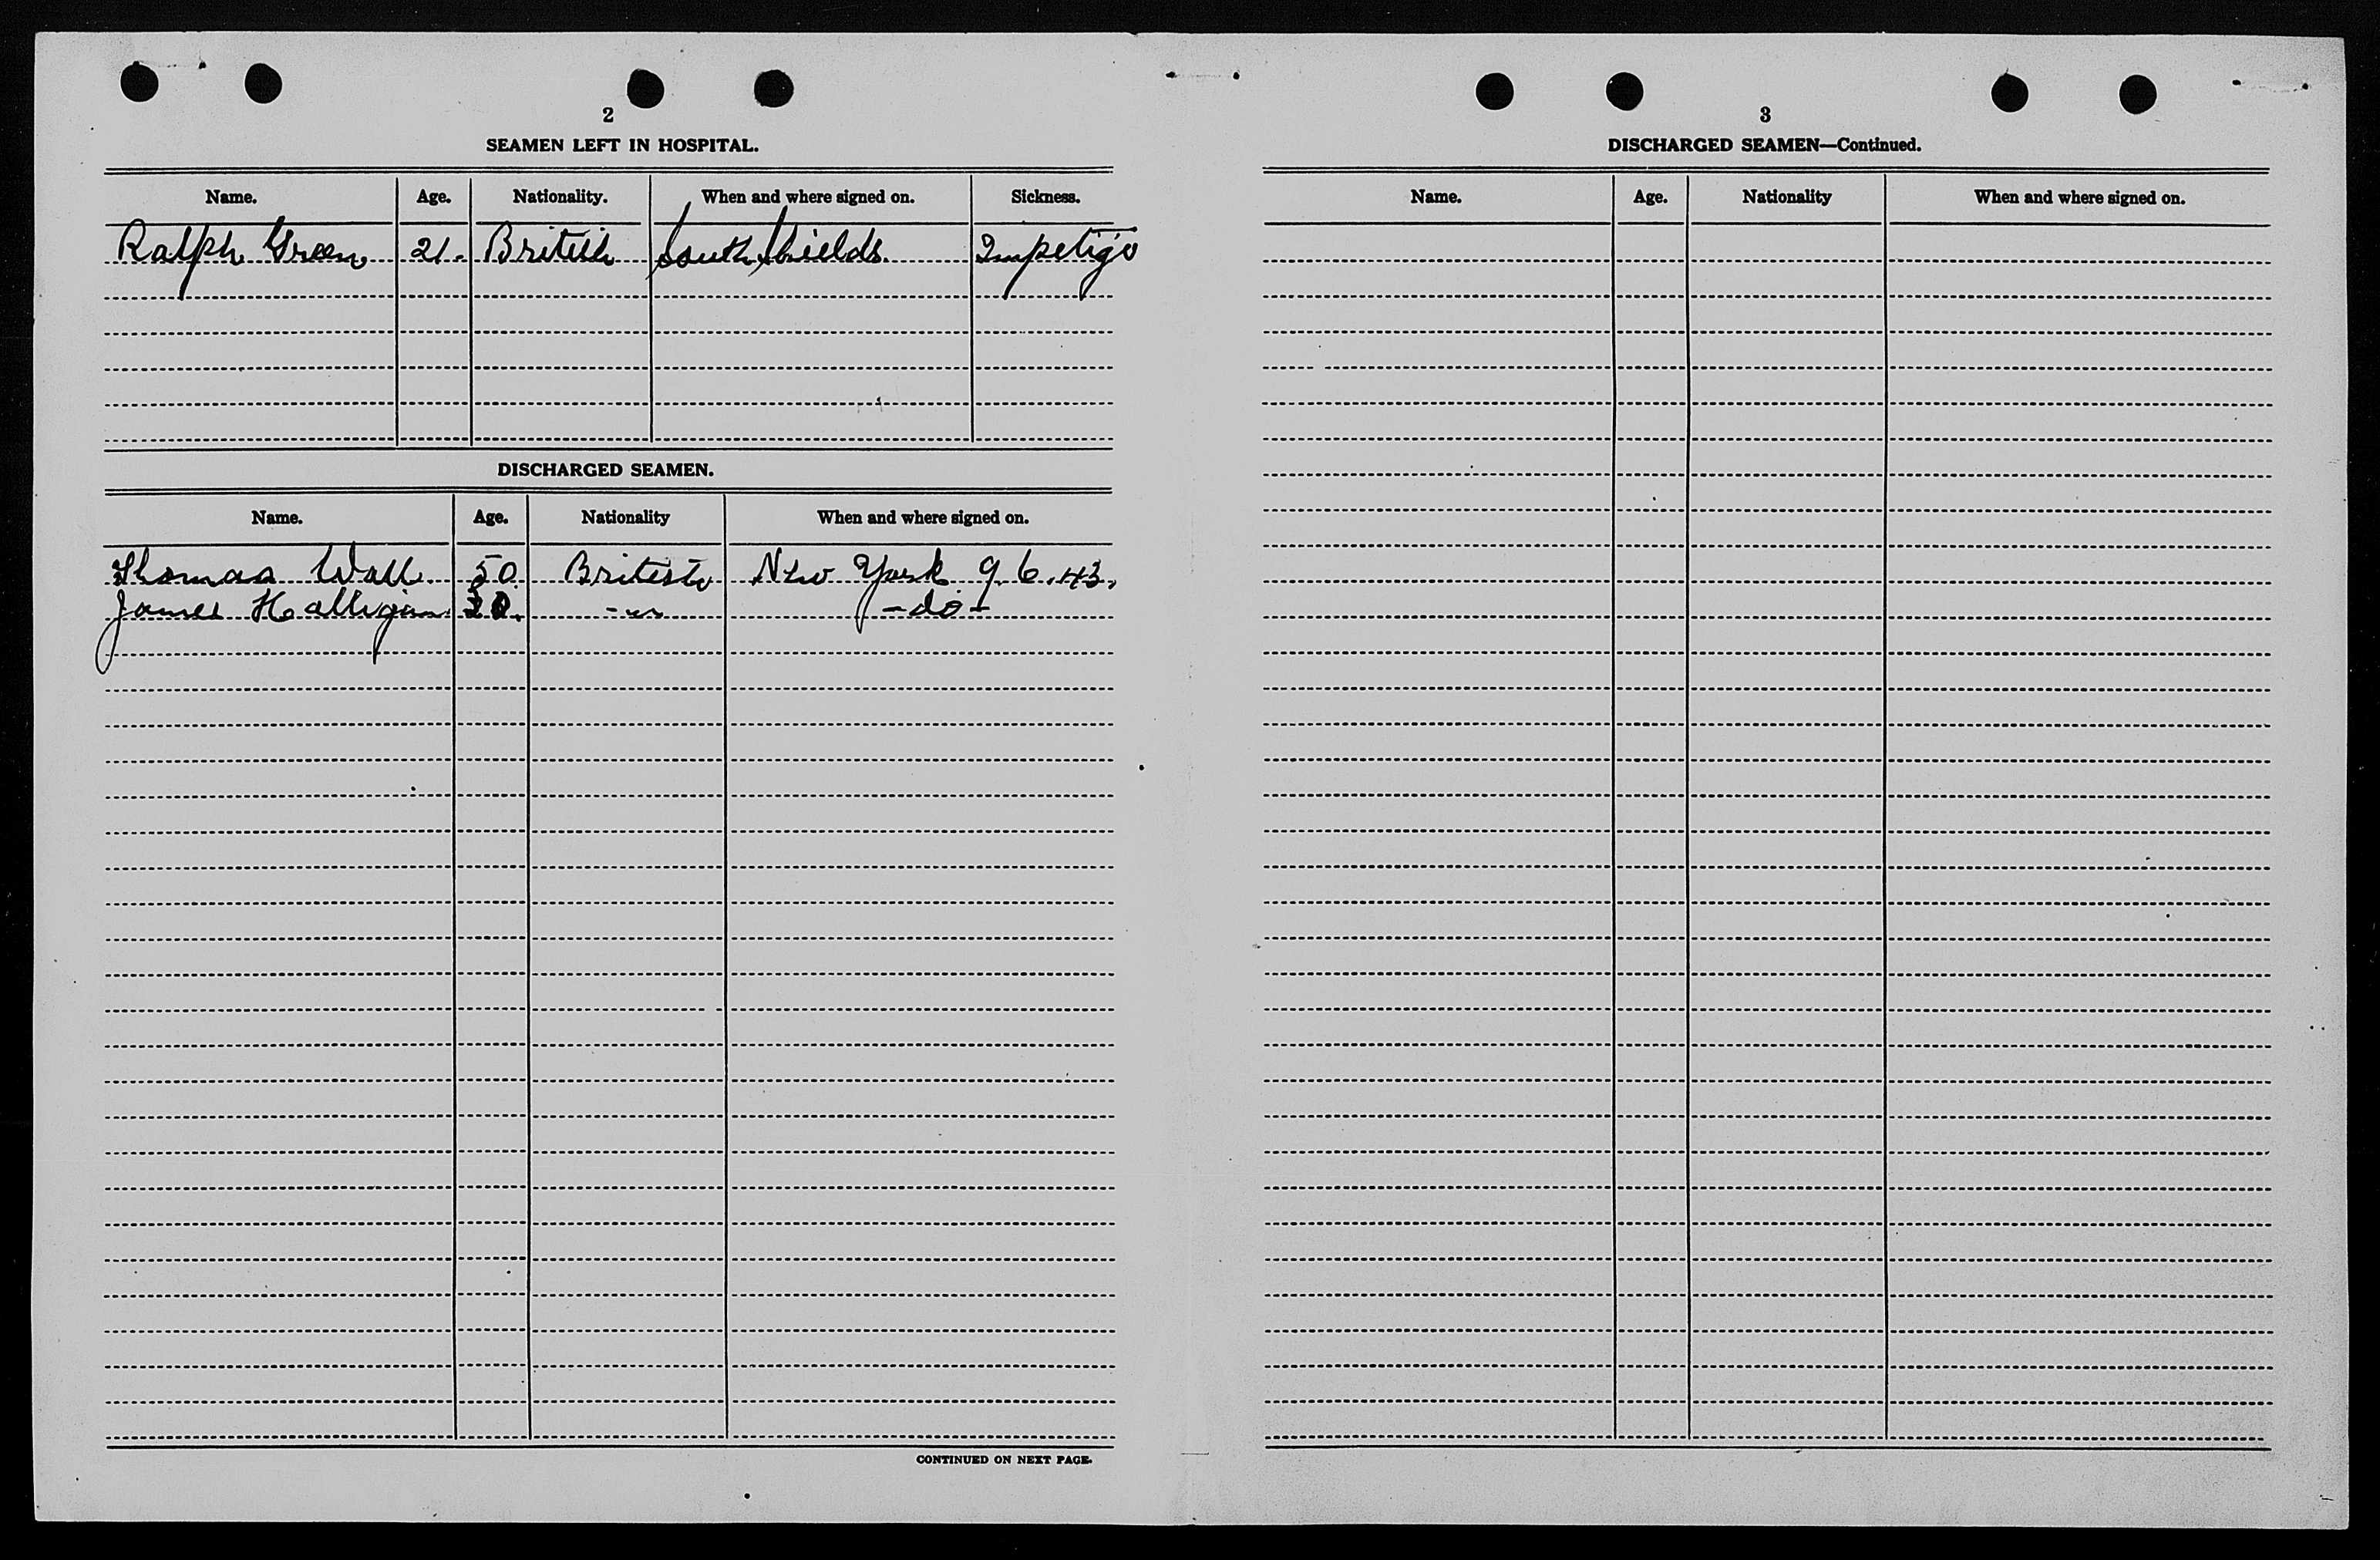 2
SEAMEN LEFT IN HOSPITAL.
Name. Age. Nationality. When and where signed on. Sickness.
Ralph Green 21. British South Shields. Impetigo
DISCHARGED SEAMEN.
Name. Age. Nationality When and where signed on.
Thomas Wall. 50. British New York 9.6.43.
James Halligan - do -
CONTINUED ON NEXT PAGE.
3
DISCHARGED SEAMEN—Continued.
Name. Age. Nationality When and where signed on.